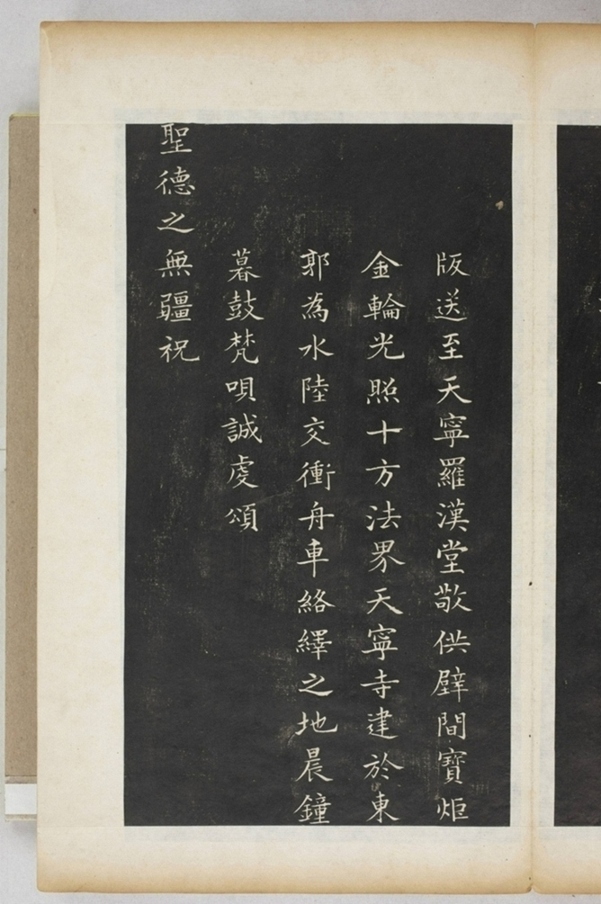 版送至天寧羅漢堂敬供壁間寶炬
金輪光照十方法界天寧寺建於東
郭為水陸交衝舟車絡繹之地晨鐘
暮鼓梵唄誠虔頌
聖德之無疆祝